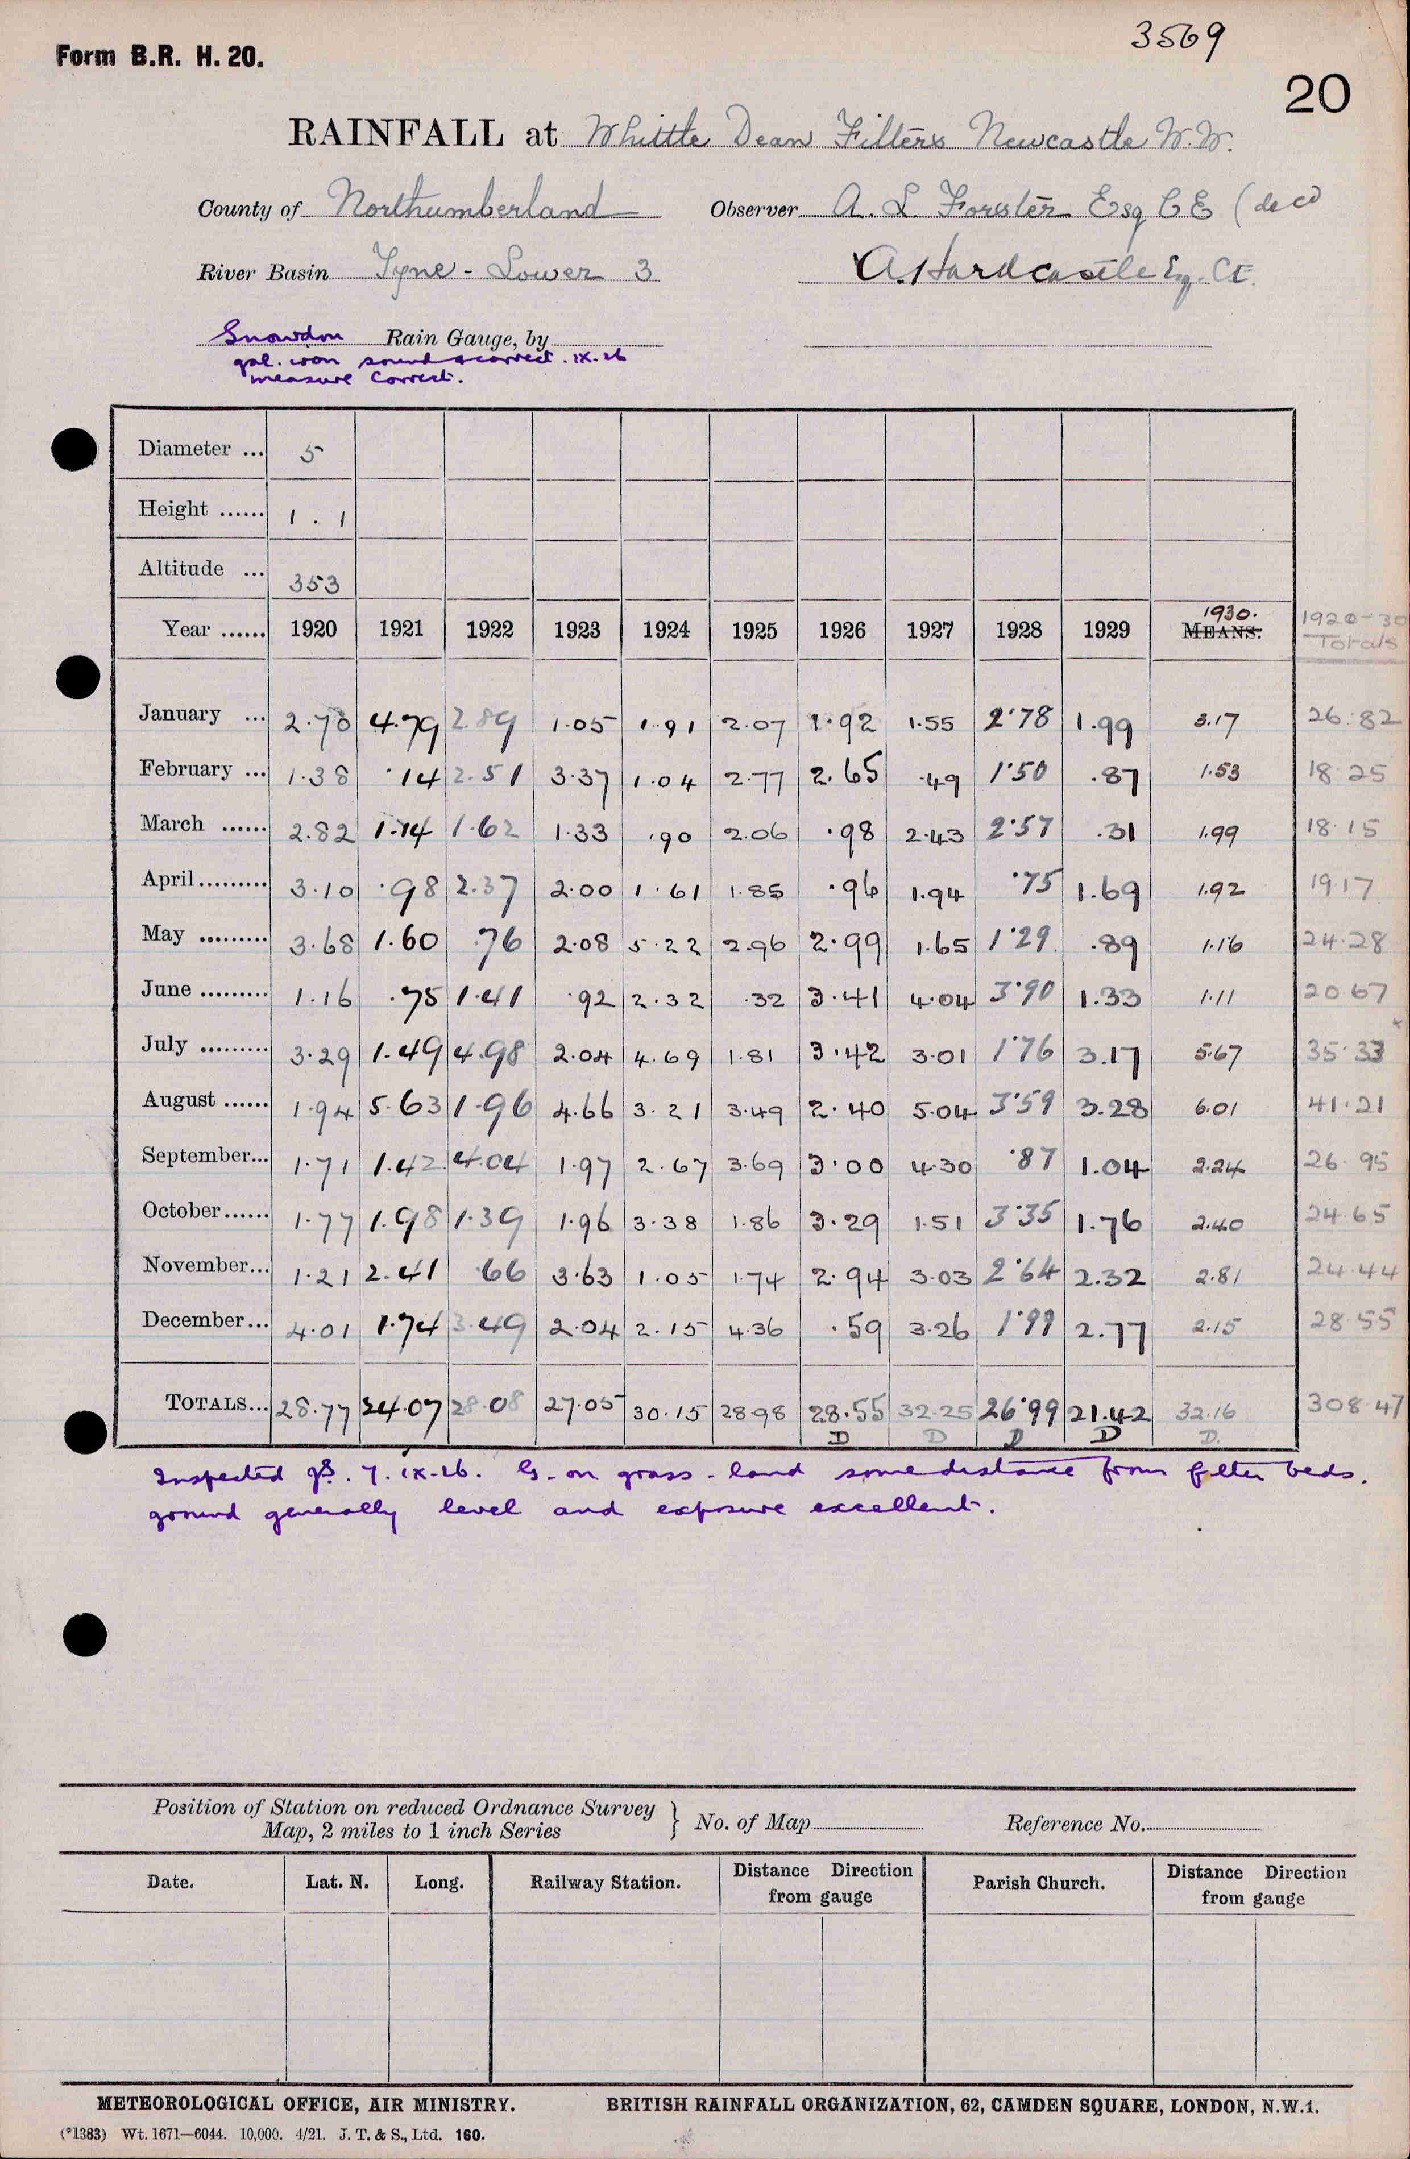 3569
Form B.R. H. 20.
20
RAINFALL at Whittle Dean Filters Newcastle W.W.
County of Northumberland Observer A. L. Forster Esq C E (decd
River Basin Tyne - Lower 3 A. Hardcastle Esq. C.E.
Snowdon Rain Gauge, by
gal. iron sound & correct. IX. 26
measure correct.
Diameter ... 5
Height ...... 1 . 1
Altitude ... 353
Year ...... 1920 1921 1922 1923 1924 1925 1926 1927 1928 1929 1930. MEANS. 1920-30 Totals
January ... 2.70 4.79 2.89 1.05 1.91 2.07 1.92 1.55 2.78 1.99 3.17 26.82
February ... 1.38 .14 2.51 3.37 1.04 2.77 2.65 .49 1.50 .87 1.53 18.25
March ...... 2.82 1.14 1.62 1.33 .90 2.06 .98 2.43 2.57 .31 1.99 18.15
April......... 3.10 .98 2.37 2.00 1.61 1.85 .96 1.94 .75 1.69 1.92 19.17
May ......... 3.68 1.60 .76 2.08 5.22 2.96 2.99 1.65 1.29 .89 1.16 24.28
June ......... 1.16 .75 1.41 .92 2.32 .32 3.41 4.04 3.90 1.33 1.11 20.67
July ......... 3.29 1.49 4.98 2.04 4.69 1.81 3.42 3.01 1.76 3.17 5.67 35.33 x
August ...... 1.94 5.63 1.96 4.66 3.21 3.49 2.40 5.04 3.59 3.28 6.01 41.21
September... 1.71 1.42 4.04 1.97 2.67 3.69 3.00 4.30 .87 1.04 2.24 26.95
October...... 1.77 1.98 1.39 1.96 3.38 1.86 3.29 1.51 3.35 1.76 2.40 24.65
November... 1.21 2.41 .66 3.63 1.05 1.74 2.94 3.03 2.64 2.32 2.81 24.44
December... 4.01 1.74 3.49 2.04 2.15 4.36 .59 3.26 1.99 2.77 2.15 28.55
TOTALS... 28.77 24.07 28.08 27.05 30.15 28.98 28.55 32.25 26.99 21.42 32.16 308.47
D D D D D.
Inspected 7. IX-26. G. on grass-land some distance from filter beds.
ground generally level and exposure excellent.
Position of Station on reduced Ordnance Survey
Map, 2 miles to 1 inch Series } No. of Map Reference No.
Date. Lat. N. Long. Railway Station. Distance Direction from gauge Parish Church. Distance Direction from gauge
METEOROLOGICAL OFFICE, AIR MINISTRY. BRITISH RAINFALL ORGANIZATION, 62, CAMDEN SQUARE, LONDON, N.W.1.
(*1383) Wt. 1671—6044. 10,000. 4/21. J. T. & S., Ltd. 160.